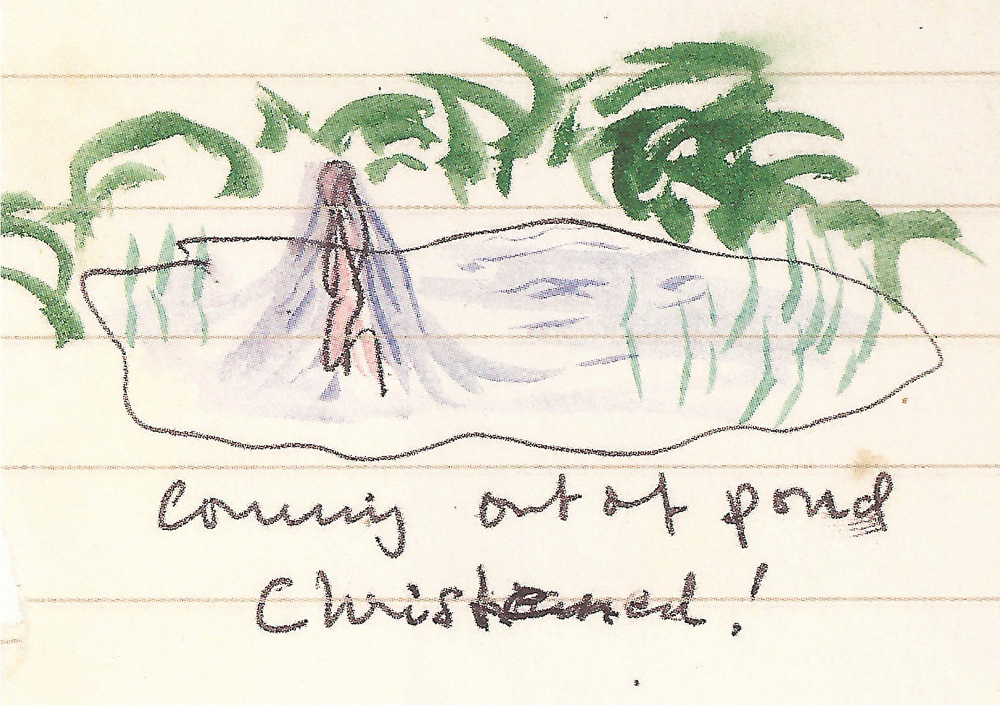 Coming out of pond
Christened!